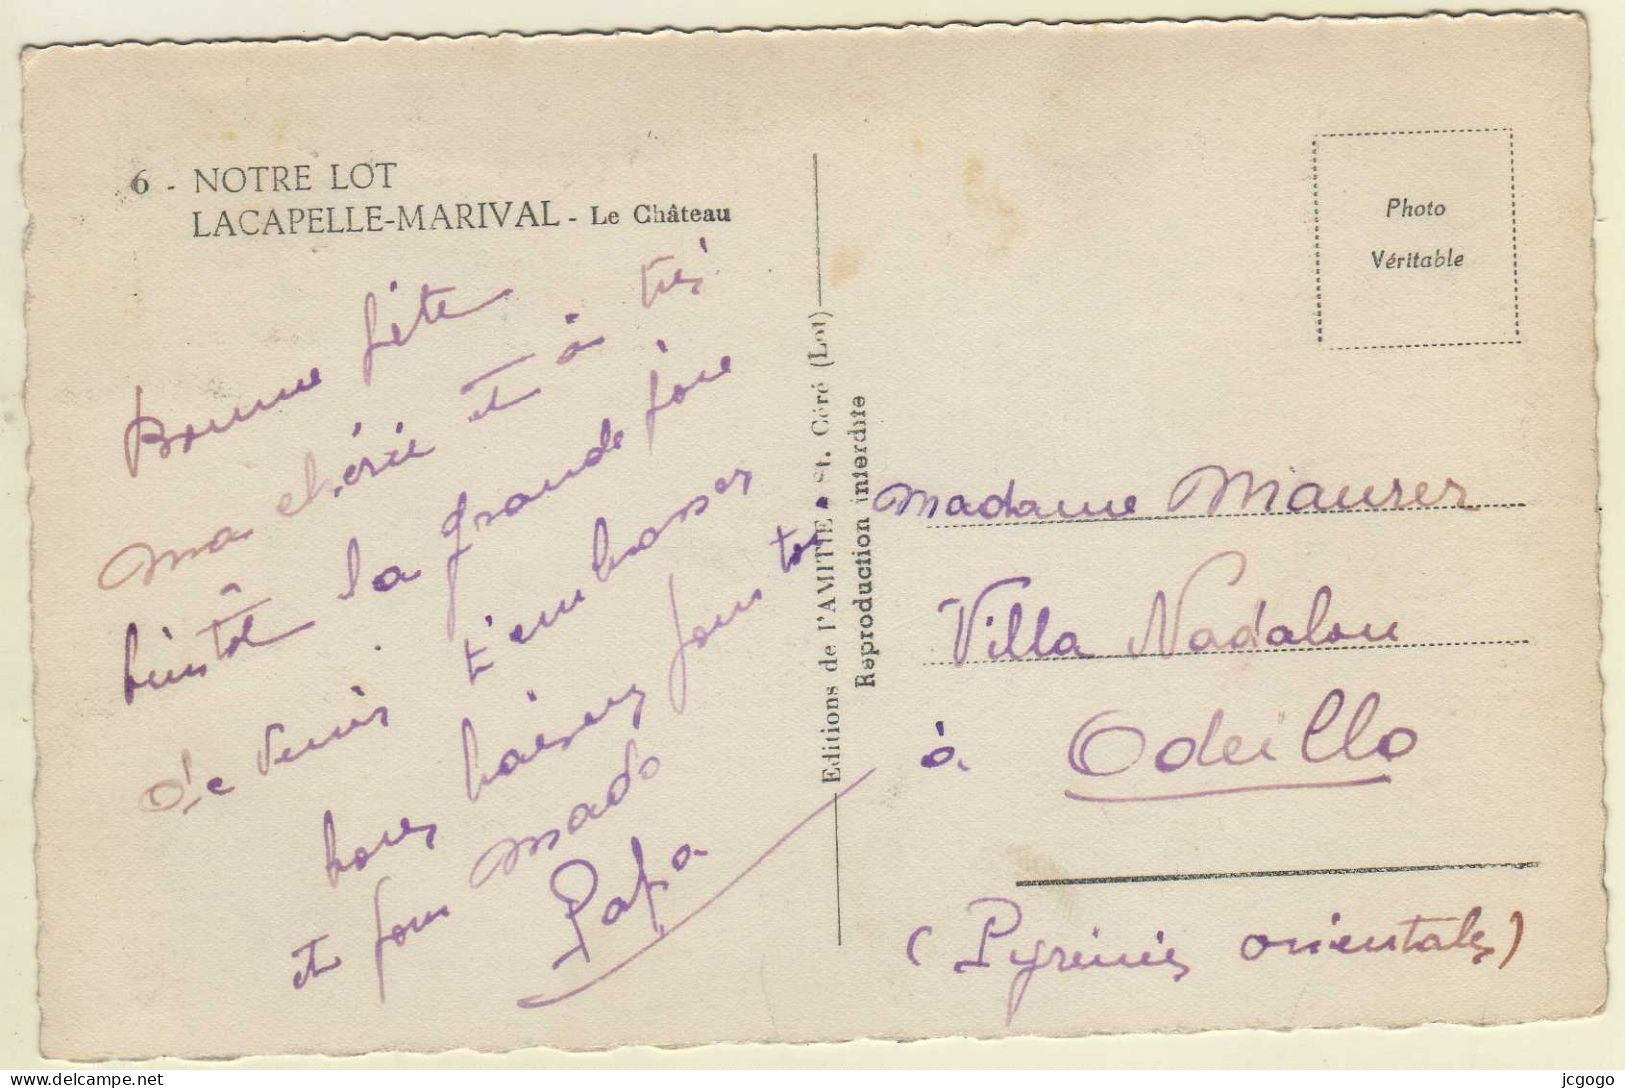 6 - NOTRE LOT
LACAPELLE-MARIVAL - Le Château
Bonne fête
ma chérie et à très
bientôt la grande joie
de venir t'embrasser
bons baisers pour toi
et pour Mado
Papa
Editions de l'AMITIE • St. Céré (Lot)
Reproduction interdite
Photo
Véritable
Madame Maurer
Villa Nadalou
à Odeillo
(Pyrénées orientales)
delcampe.net
jcgogo